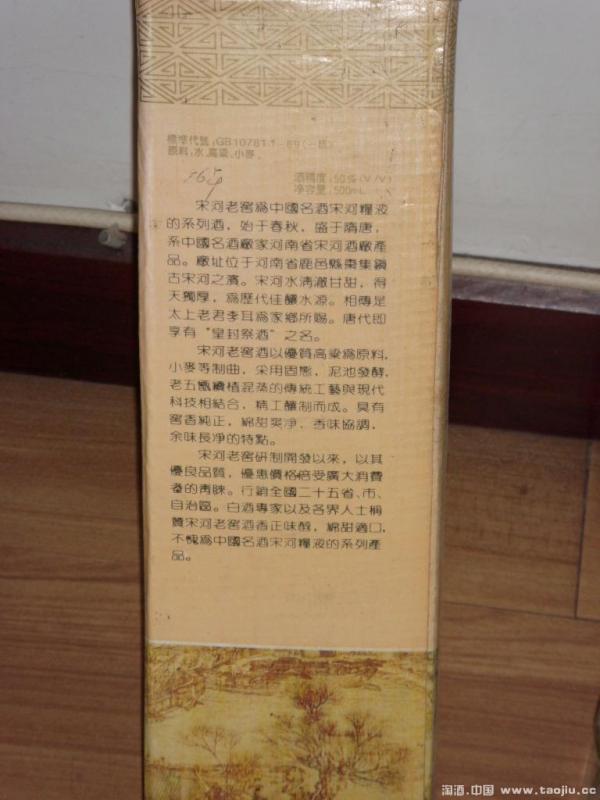 標準代號:GB10781.1-89(一級)
原料:水、高粱、小麥、
酒精度:50%(V/V)
净容量:500mL
宋河老窖爲中國名酒宋河糧液
的系列酒,始于春秋,盛于隋唐,
系中國名酒廠家河南省宋河酒廠產
品。廠址位于河南省鹿邑縣棗集鎮
古宋河之濱。宋河水清澈甘甜,得
天獨厚,爲歷代佳釀水源。相傳是
太上老君李耳爲家鄉所賜。唐代即
享有"皇封祭酒"之名。
宋河老窖酒以優質高粱爲原料,
小麥等制曲,采用固態,泥池發酵,
老五甑續楂混蒸的傳統工藝與現代
科技相結合,精工釀制而成。具有
窖香純正,綿甜爽净、香味協調,
余味長净的特點。
宋河老窖研制開發以來,以其
優良品質,優惠價格倍受廣大消費
者的青睞。行銷全國二十五省、市、
自治區。白酒專家以及各界人士稱
贊宋河老窖酒香正味醇,綿甜適口,
不愧爲中國名酒宋河糧液的系列產
品。
淘酒.中国 www.taojiu.cc